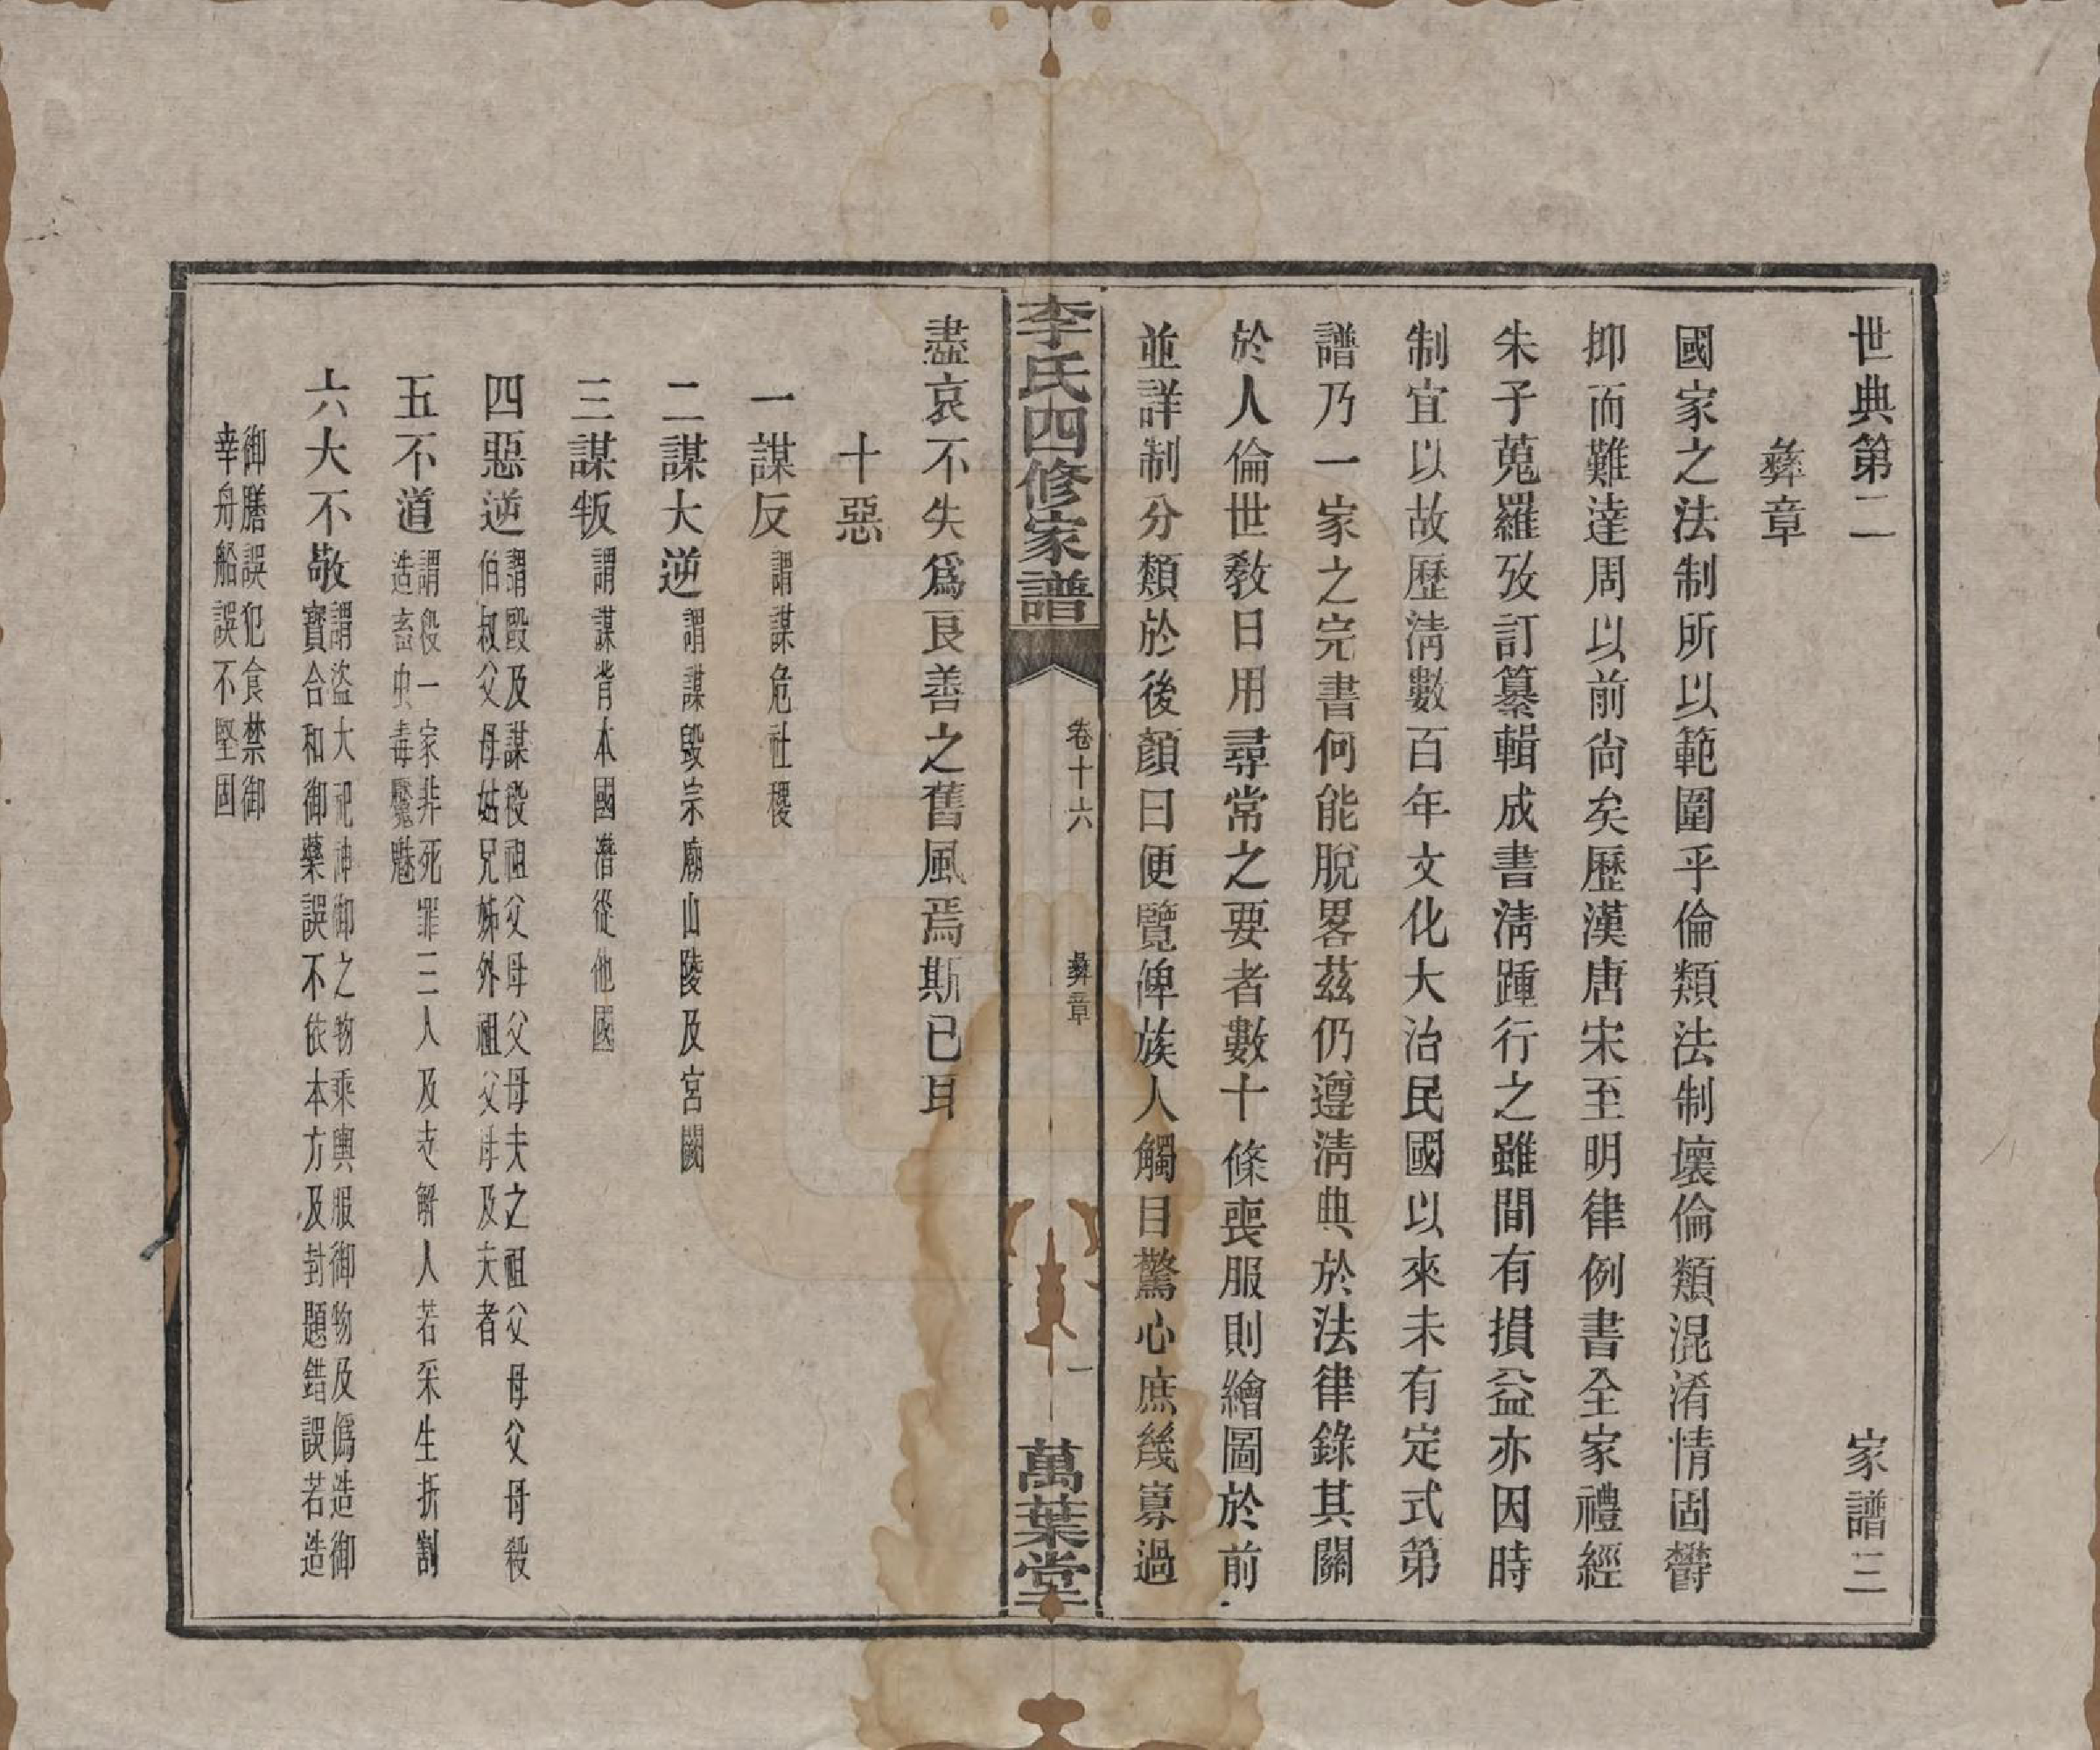 世典第二 家譜三
彝章
國家之法制所以範圍乎倫類法制壞倫類混淆情固鬱
抑而難達周以前尙矣歷漢唐宋至明律例書全家禮經
朱子蒐羅攷訂纂輯成書淸踵行之雖間有損益亦因時
制宜以故歷淸數百年文化大治民國以來未有定式第
譜乃一家之完書何能脫畧茲仍遵淸典於法律錄其關
於人倫世敎日用尋常之要者數十條喪服則繪圖於前
並詳制分類於後顏曰便覽俾族人觸目驚心庶幾寡過
李氏四修家譜
卷十六
彝章
一
萬葉堂
盡哀不失爲良善之舊風焉斯已耳
十惡
一謀反 謂謀危社稷
二謀大逆 謂謀毀宗廟山陵及宮闕
三謀叛 謂謀背本國潛從他國
四惡逆 謂毆及謀殺祖父母父母夫之祖父母父母殺
伯叔父母姑兄姊外祖父母及夫者
五不道 謂殺一家非死罪三人及支解人若采生折割
造畜虫毒魘魅
六大不敬 謂盜大祀神御之物乘輿服御物及僞造御
寶合和御藥誤不依本方及封題錯誤若造
御膳誤犯食禁御
幸舟船誤不堅固